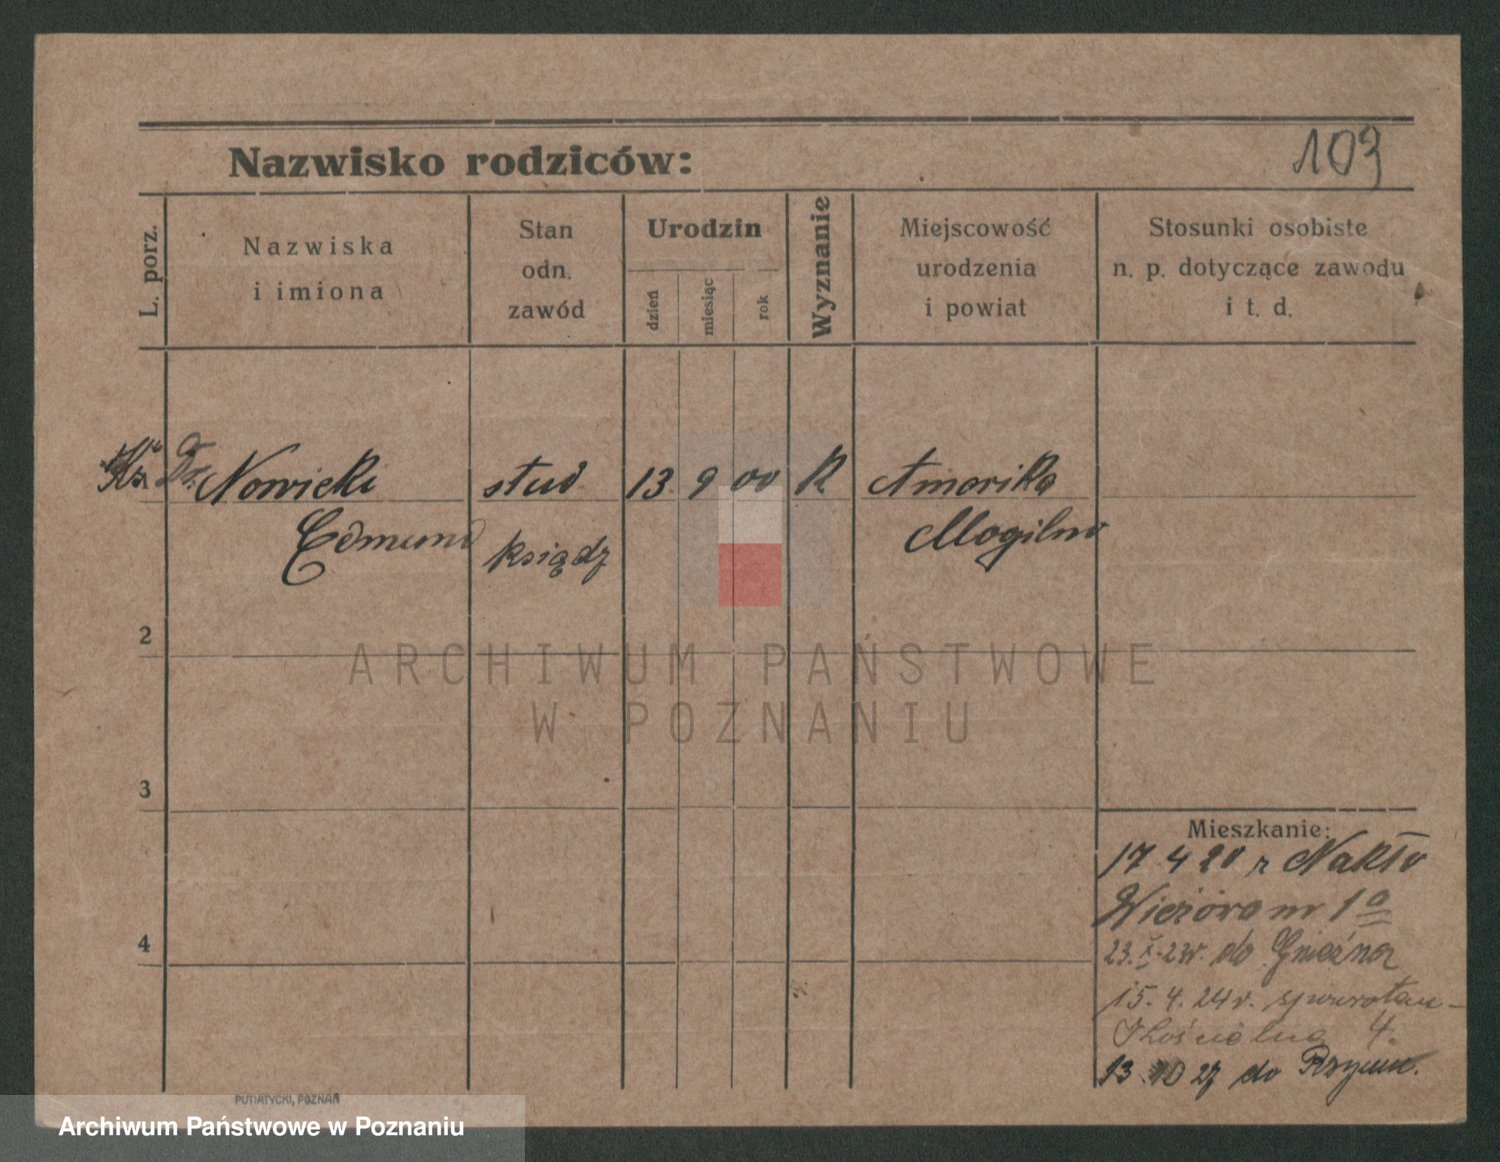 103
Nazwisko rodziców:
L. porz.
Nazwiska
i imiona
Stan
odn.
zawód
Urodzin
dzień
miesiąc
rok
Wyznanie
Miejscowość
urodzenia
i powiat
Stosunki osobiste
n. p. dotyczące zawodu
i t. d.
Ks. Dr. Nowicki stud 13 9 00 K Amerika
Edmund ksiądz Mogilno
2
ARCHIWUM PAŃSTWOWE
W POZNANIU
3
Mieszkanie:
17 4 20 r Nakło
nr 1a
4
23. X. 23r. do Gniezna
15. 4. 24 r. spowrotem -
Kościelna 4.
13 10 27 do Rzymu.
PUTIATYCKI, POZNAŃ
Archiwum Państwowe w Poznaniu